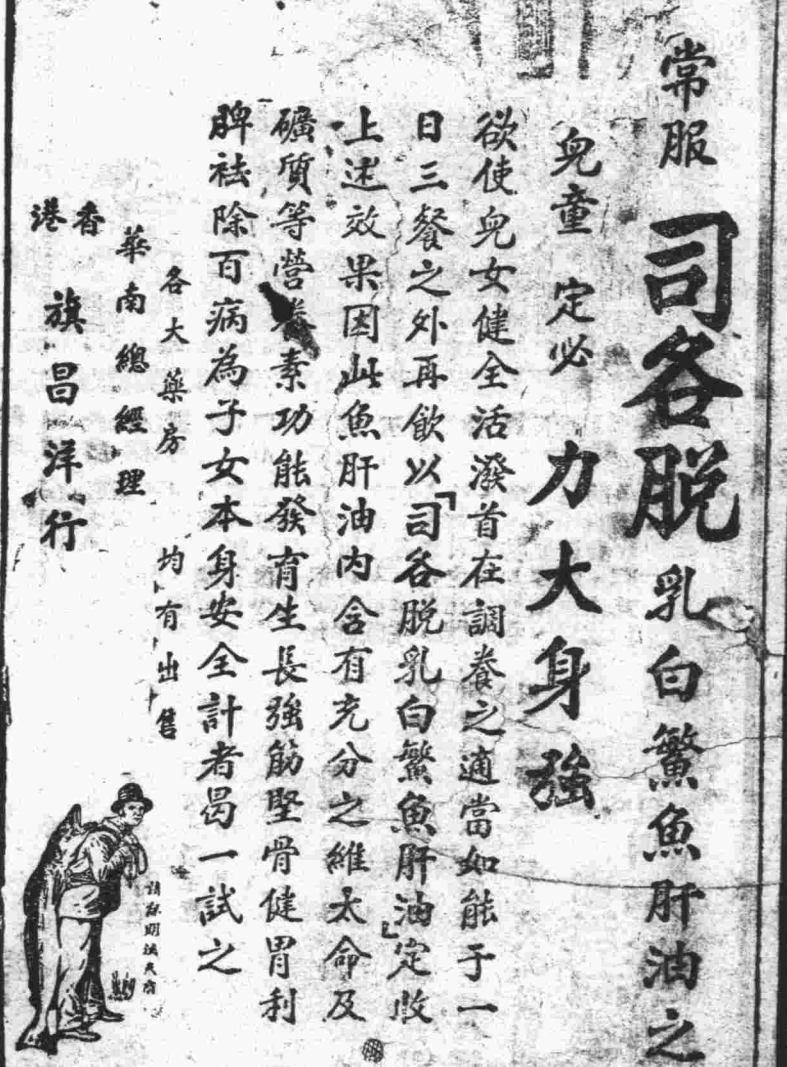 常服司各脱乳白鰵魚肝油之
兒童定必力大身強
欲使兒女健全活潑首在調養之適當如能于一
日三餐之外再飲以「司各脱乳白鰵魚肝油」定收
上述效果因此魚肝油內含有充分之維太命及
礦質等營養素功能發育生長強筋堅骨健胃利
脾祛除百病為子女本身安全計者曷一試之
各大藥房均有出售
華南總經理
香港旗昌洋行
請認明漁夫商